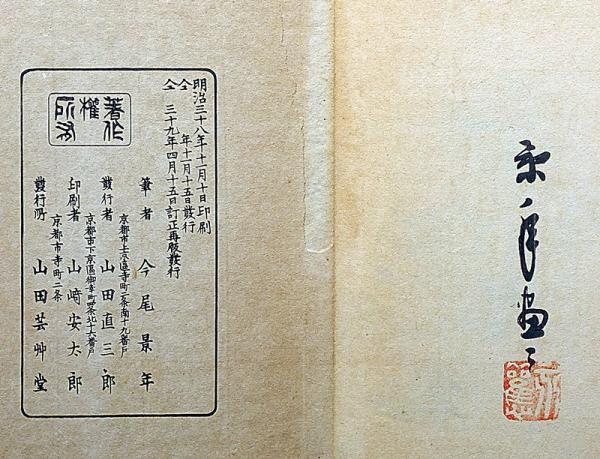 景年画
明治三十八年十一月十日印刷
仝 年十一月十五日發行
仝 三十九年四月十五日訂正再版發行
著作
權
所有
京都市上京區寺町二条南十九番戸
筆者 今尾景年
京都市下京區御幸町四条北十六番戸
發行者 山田直三郎
印刷者 山崎安太郎
京都市寺町二条
發行所 山田芸艸堂